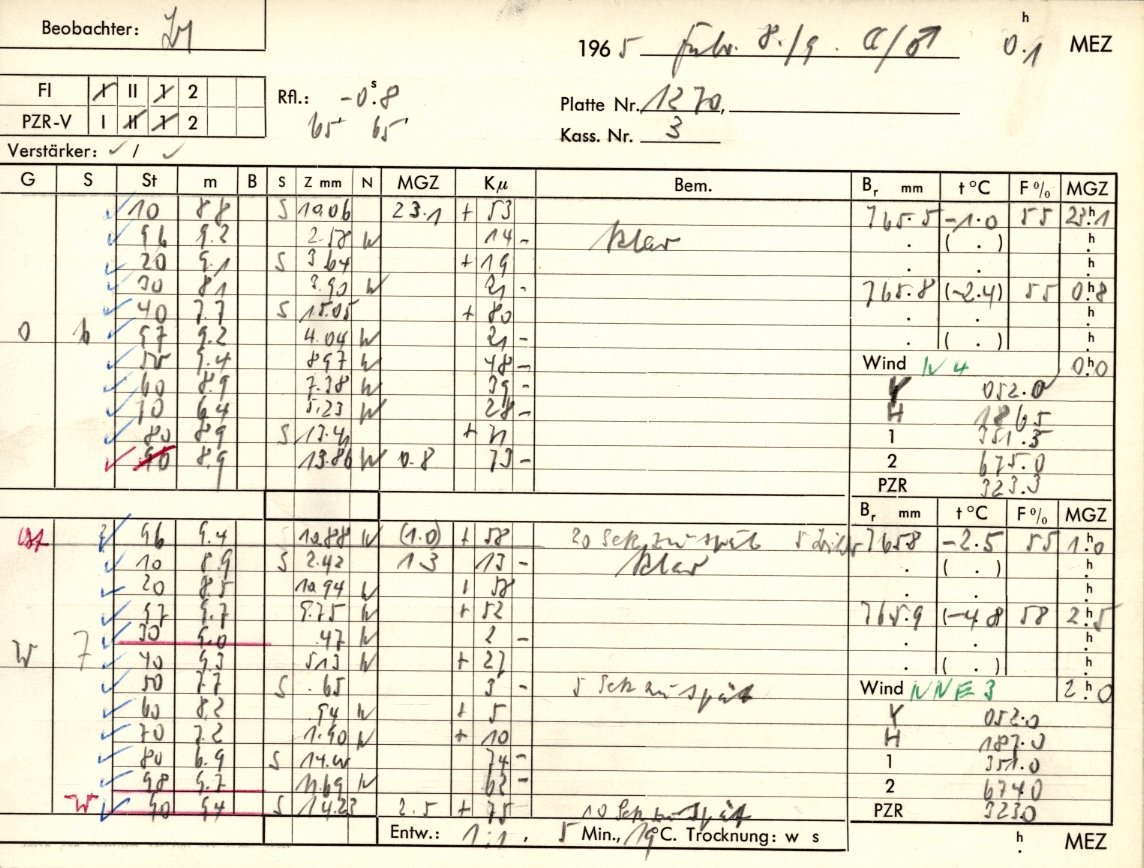 Beobachter:
h
196 5 Febr. 8./9. 0.1 MEZ
FI I II 1 2
PZR-V I II 1 2
Rfl.: -0.ˢ8
65 65
Platte Nr. 1270,
Kass. Nr. 3
Verstärker: /
G S St m B S Z mm N MGZ Kμ Bem. Bᵣ mm t °C F % MGZ
10 8.8 S 10.06 23.1 + 53 765.5 -1.0 55 23.ʰ1
96 9.2 2.58 N 14 - klar ( . ) h
20 9.1 S 3.64 + 19 h
30 8.1 3.90 N 21 - 765.8 (-2.4) 55 0.ʰ8
40 7.7 S 15.05 + 80 h
O b 97 9.2 4.04 N 21 - ( . ) h
50 9.4 8.97 N 48 - Wind N 4 0.ʰ0
60 8.9 7.38 N 39 - Y 052.0
70 6.4 5.23 N 28 - H 186.5
80 8.9 S 13.4 + 71 1 351.5
90 8.9 13.86 N 0.8 73 - 2 675.0
PZR 323.3
Bᵣ mm t °C F % MGZ
96 9.4 10.88 N (1.0) + 58 20 Sek zu spät 765.8 -2.5 55 1.ʰ0
10 8.9 S 2.42 1.3 13 - klar ( . ) h
20 8.5 10.94 N + 58 h
97 9.7 9.75 N + 52 765.9 (-4.8 58 2.ʰ5
30 9.0 .47 N 2 - h
W 7 40 9.3 5.13 N + 27 ( . ) h
50 7.7 S .65 3 - 5 Sek zu spät Wind NNE 3 2.ʰ0
60 8.2 .94 N + 5 Y 052.0
70 7.2 1.90 N + 10 H 187.0
80 6.9 S 14.00 74 - 1 351.0
98 9.7 11.69 N 62 - 2 674.0
W 90 9.4 S 14.23 2.5 + 75 10 Sek zu spät PZR 323.0
Entw.: 1:1, 5 Min., 19°C. Trocknung: w s h MEZ